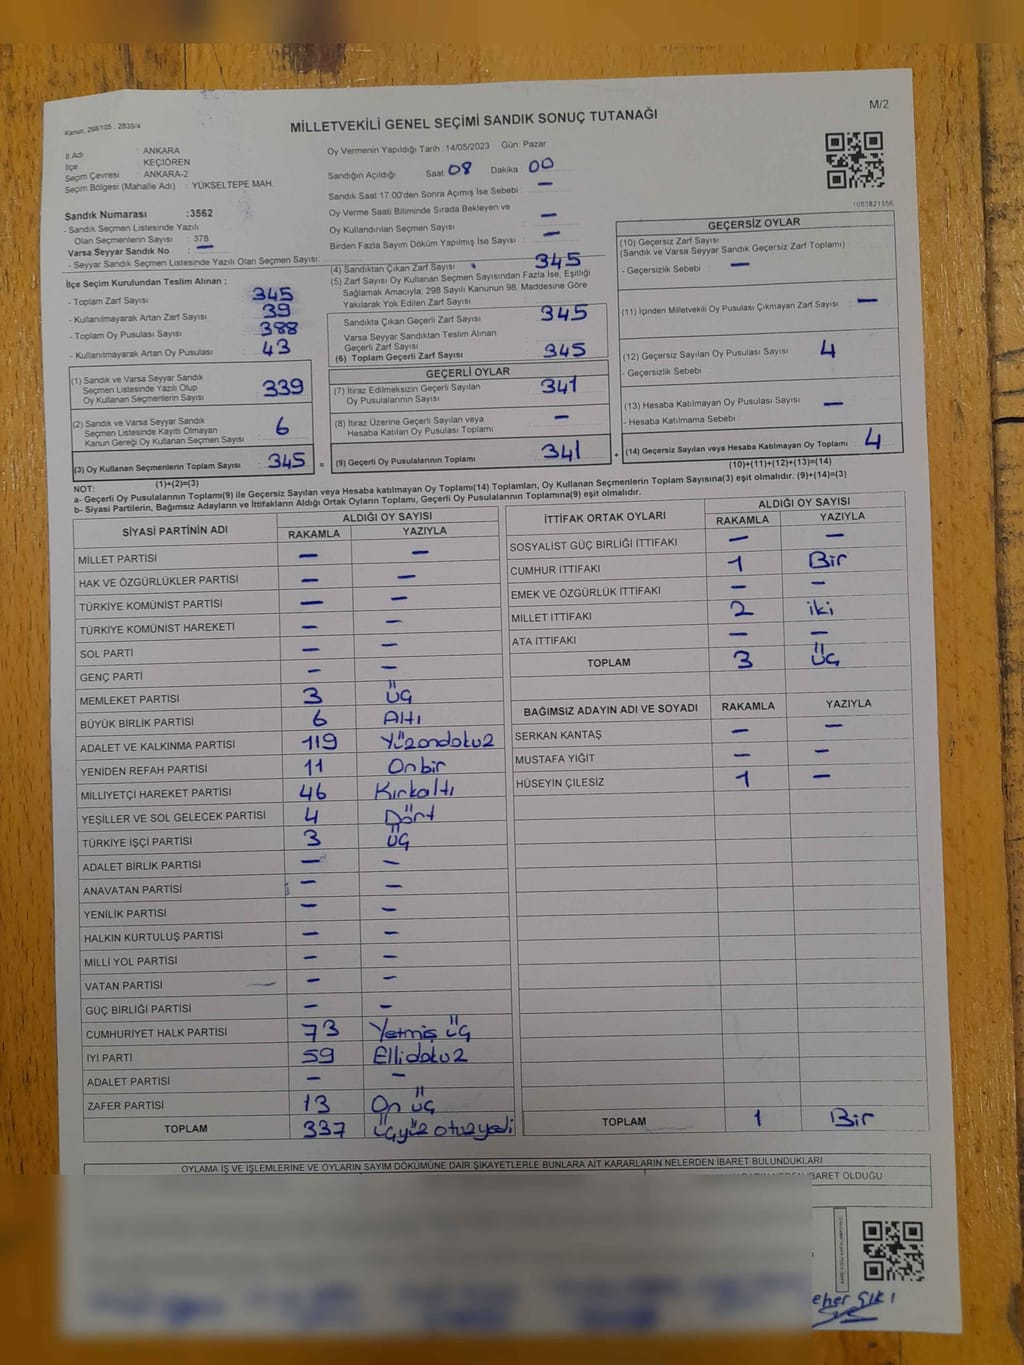 M/2
Kanun, 298/105 , 2839/4
MİLLETVEKİLİ GENEL SEÇİMİ SANDIK SONUÇ TUTANAĞI
İl Adı ANKARA
İlçe KEÇİÖREN
Seçim Çevresi ANKARA-2
Seçim Bölgesi (Mahalle Adı) : YÜKSELTEPE MAH.
Oy Vermenin Yapıldığı Tarih :14/05/2023 Gün: Pazar
Sandığın Açıldığı Saat 08 Dakika 00
Sandık Saat 17:00'den Sonra Açımış İse Sebebi : —
Oy Verme Saati Bitiminde Sırada Bekleyen ve
Oy Kullandırılan Seçmen Sayısı —
Birden Fazla Sayım Döküm Yapılmış İse Sayısı : —
1083821556
Sandık Numarası :3562
- Sandık Seçmen Listesinde Yazılı
Olan Seçmenlerin Sayısı : 378
Varsa Seyyar Sandık No : —
- Seyyar Sandık Seçmen Listesinde Yazılı Olan Seçmen Sayısı:
İlçe Seçim Kurulundan Teslim Alınan ;
- Toplam Zarf Sayısı 345
- Kullanılmayarak Artan Zarf Sayısı 39
- Toplam Oy Pusulası Sayısı 388
- Kullanılmayarak Artan Oy Pusulası 43
(1) Sandık ve Varsa Seyyar Sandık
Seçmen Listesinde Yazılı Olup
Oy Kullanan Seçmenlerin Sayısı 339
(2) Sandık ve Varsa Seyyar Sandık
Seçmen Listesinde Kayıtlı Olmayan
Kanun Gereği Oy Kullanan Seçmen Sayısı 6
(3) Oy Kullanan Seçmenlerin Toplam Sayısı 345
(1)+(2)=(3)
(4) Sandıktan Çıkan Zarf Sayısı 345
(5) Zarf Sayısı Oy Kullanan Seçmen Sayısından Fazla İse, Eşitliği
Sağlamak Amacıyla, 298 Sayılı Kanunun 98. Maddesine Göre
Yakılarak Yok Edilen Zarf Sayısı
Sandıkta Çıkan Geçerli Zarf Sayısı 345
Varsa Seyyar Sandıktan Teslim Alınan
Geçerli Zarf Sayısı
(6) Toplam Geçerli Zarf Sayısı 345
GEÇERLİ OYLAR
(7) İtiraz Edilmeksizin Geçerli Sayılan
Oy Pusulalarının Sayısı 341
(8) İtiraz Üzerine Geçerli Sayılan veya
Hesaba Katılan Oy Pusulası Toplamı —
= (9) Geçerli Oy Pusulalarının Toplamı 341
GEÇERSİZ OYLAR
(10) Geçersiz Zarf Sayısı
(Sandık ve Varsa Seyyar Sandık Geçersiz Zarf Toplamı)
- Geçersizlik Sebebi : —
(11) İçinden Milletvekili Oy Pusulası Çıkmayan Zarf Sayısı —
(12) Geçersiz Sayılan Oy Pusulası Sayısı 4
- Geçersizlik Sebebi :
(13) Hesaba Katılmayan Oy Pusulası Sayısı —
- Hesaba Katılmama Sebebi :
+ (14) Geçersiz Sayılan veya Hesaba Katılmayan Oy Toplamı 4
(10)+(11)+(12)+(13)=(14)
NOT:
a- Geçerli Oy Pusulalarının Toplamı(9) ile Geçersiz Sayılan veya Hesaba katılmayan Oy Toplamı(14) Toplamları, Oy Kullanan Seçmenlerin Toplam Sayısına(3) eşit olmalıdır. (9)+(14)=(3)
b- Siyasi Partilerin, Bağımsız Adayların ve İttifakların Aldığı Ortak Oyların Toplamı, Geçerli Oy Pusulalarının Toplamına(9) eşit olmalıdır.
SİYASİ PARTİNİN ADI ALDIĞI OY SAYISI
RAKAMLA YAZIYLA
MİLLET PARTİSİ — —
HAK VE ÖZGÜRLÜKLER PARTİSİ — —
TÜRKİYE KOMÜNİST PARTİSİ — —
TÜRKİYE KOMÜNİST HAREKETİ — —
SOL PARTİ — —
GENÇ PARTİ — —
MEMLEKET PARTİSİ 3 ÜÇ
BÜYÜK BİRLİK PARTİSİ 6 Altı
ADALET VE KALKINMA PARTİSİ 119 Yüzondokuz
YENİDEN REFAH PARTİSİ 11 Onbir
MİLLİYETÇİ HAREKET PARTİSİ 46 Kırkaltı
YEŞİLLER VE SOL GELECEK PARTİSİ 4 Dört
TÜRKİYE İŞÇİ PARTİSİ 3 ÜÇ
ADALET BİRLİK PARTİSİ — —
ANAVATAN PARTİSİ — —
YENİLİK PARTİSİ — —
HALKIN KURTULUŞ PARTİSİ — —
MİLLİ YOL PARTİSİ — —
VATAN PARTİSİ — —
GÜÇ BİRLİĞİ PARTİSİ — —
CUMHURİYET HALK PARTİSİ 73 Yetmiş üç
İYİ PARTİ 59 Ellidokuz
ADALET PARTİSİ — —
ZAFER PARTİSİ 13 On üç
TOPLAM 337 üçyüz otuzyedi
İTTİFAK ORTAK OYLARI ALDIĞI OY SAYISI
RAKAMLA YAZIYLA
SOSYALİST GÜÇ BİRLİĞİ İTTİFAKI — —
CUMHUR İTTİFAKI 1 Bir
EMEK VE ÖZGÜRLÜK İTTİFAKI — —
MİLLET İTTİFAKI 2 iki
ATA İTTİFAKI — —
TOPLAM 3 ÜÇ
BAĞIMSIZ ADAYIN ADI VE SOYADI RAKAMLA YAZIYLA
SERKAN KANTAŞ — —
MUSTAFA YİĞİT — —
HÜSEYİN ÇİLESİZ 1 —
TOPLAM 1 Bir
OYLAMA İŞ VE İŞLEMLERİNE VE OYLARIN SAYIM DÖKÜMÜNE DAİR ŞİKAYETLERLE BUNLARA AİT KARARLARIN NELERDEN İBARET BULUNDUKLARI
İBARET OLDUĞU